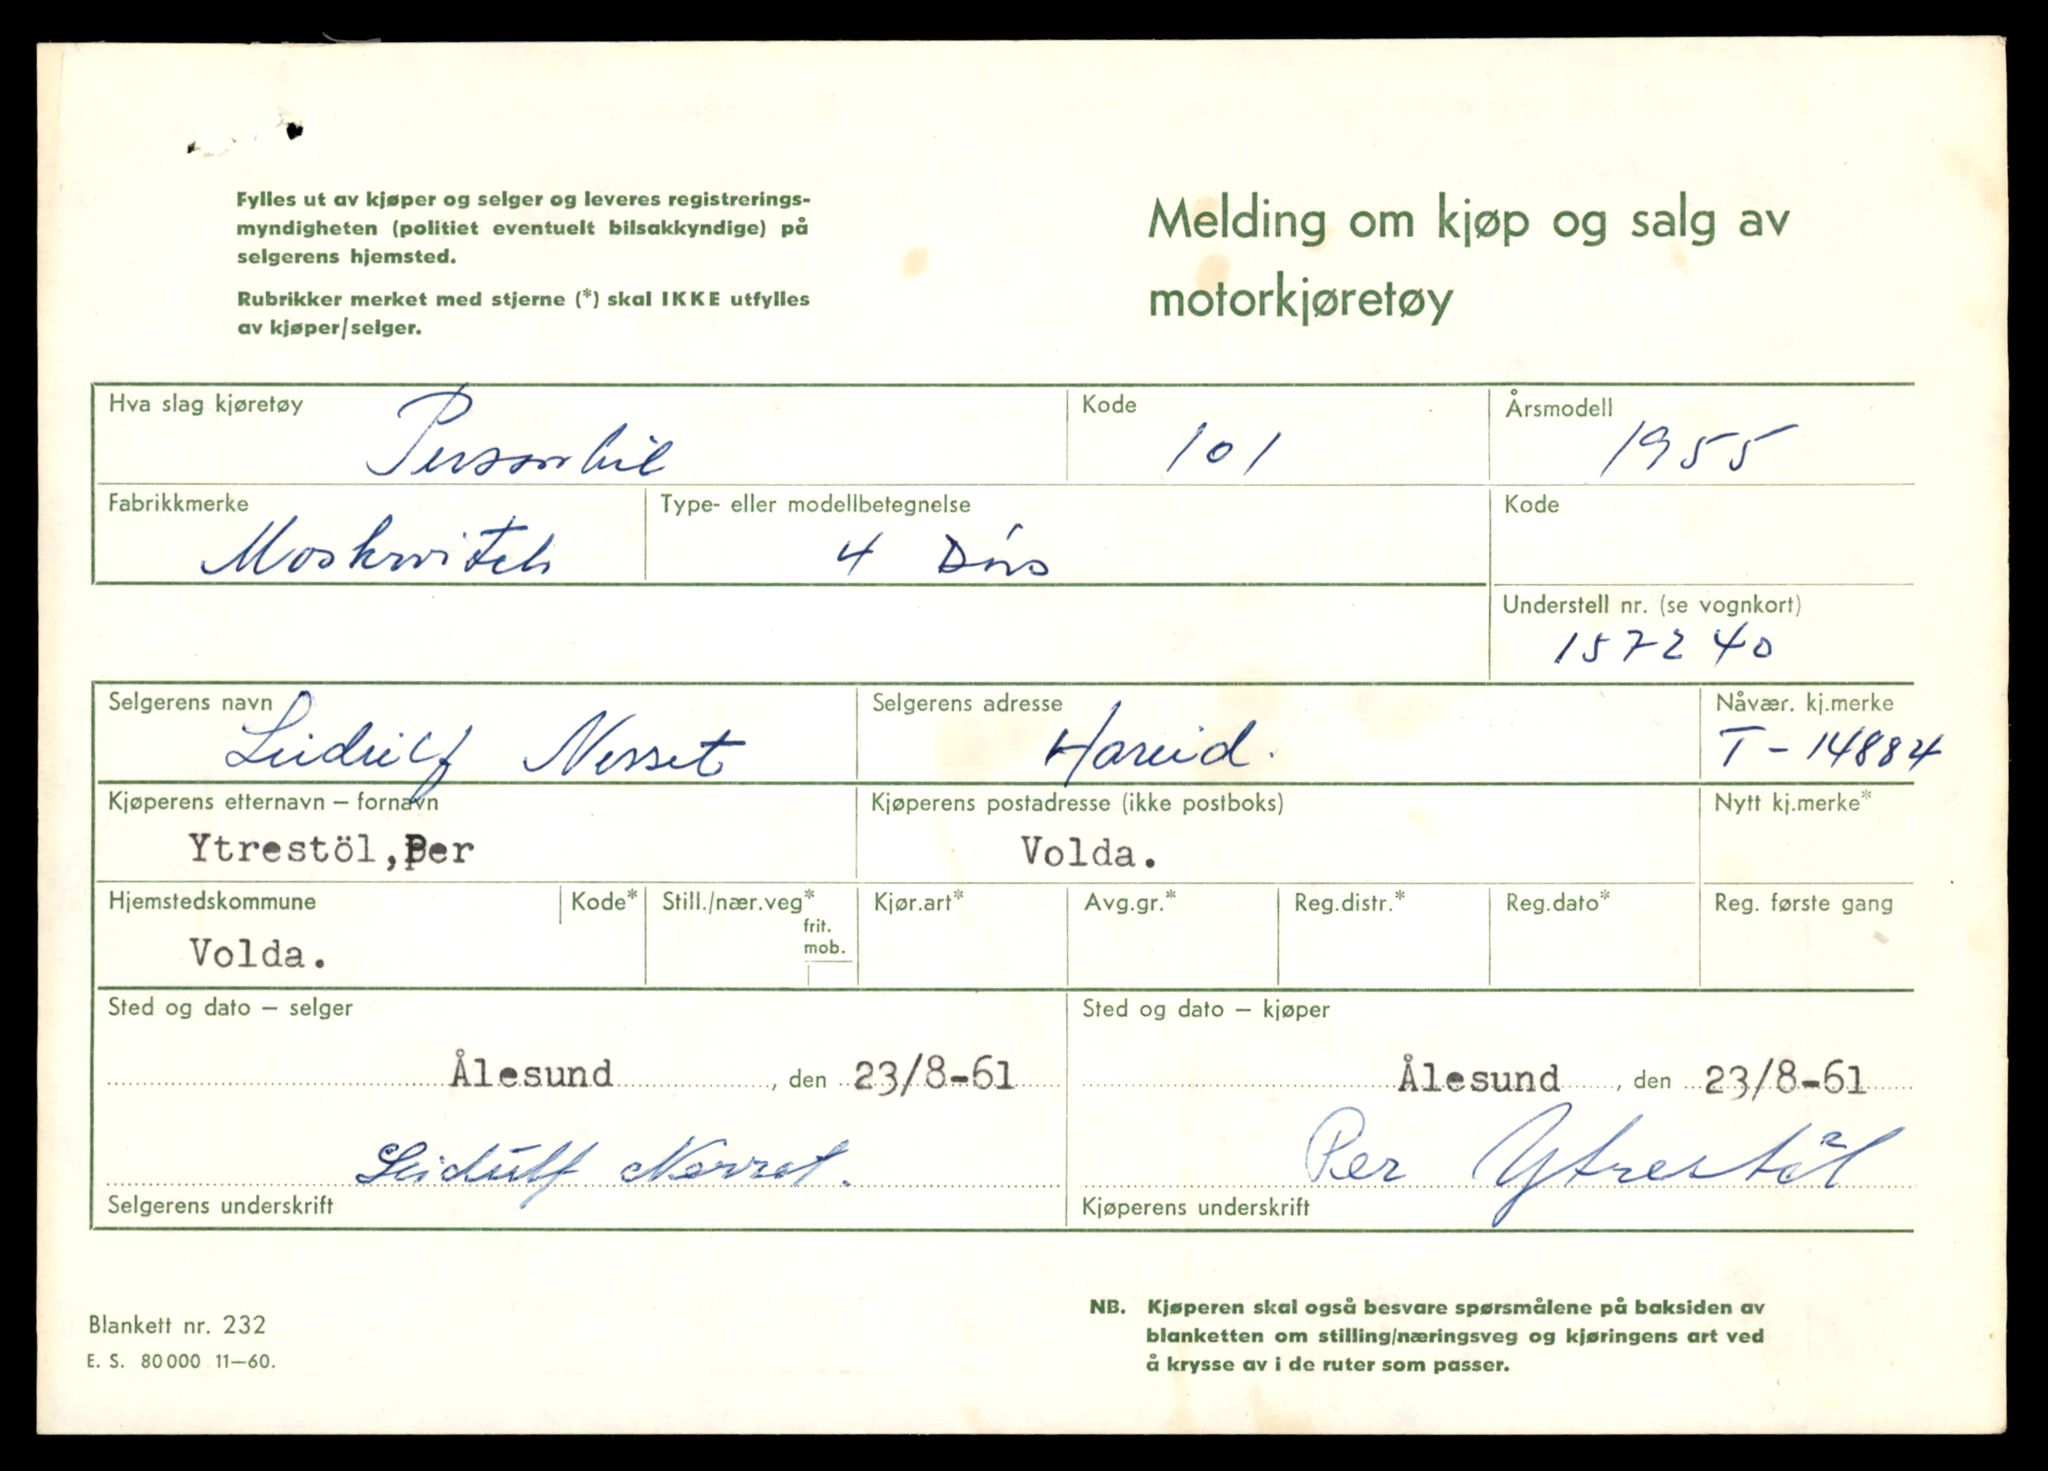 Fylles ut av kjøper og selger og leveres registrerings-
myndigheten (politiet eventuelt bilsakkyndige) på
selgerens hjemsted.
Rubrikker merket med stjerne (*) skal IKKE utfylles
av kjøper/selger.
Melding om kjøp og salg av
motorkjøretøy
Hva slag kjøretøy
Personbil
Kode
101
Årsmodell
1955
Fabrikkmerke
Moskwitch
Type- eller modellbetegnelse
4 Dørs
Kode
Understell nr. (se vognkort)
157240
Selgerens navn
Leidulf Nesset
Selgerens adresse
Hareid.
Nåvær. kj.merke
T-14884
Kjøperens etternavn – fornavn
Ytrestöl, Per
Kjøperens postadresse (ikke postboks)
Volda.
Nytt kj.merke*
Hjemstedskommune
Volda.
Kode*
Still./nær.veg*
frit.
mob.
Kjør.art*
Avg.gr.*
Reg.distr.*
Reg.dato*
Reg. første gang
Sted og dato – selger
Ålesund, den 23/8-61
Leidulf Nesset.
Selgerens underskrift
Sted og dato – kjøper
Ålesund, den 23/8-61
Per Ytrestöl
Kjøperens underskrift
Blankett nr. 232
E. S. 80000 11–60.
NB. Kjøperen skal også besvare spørsmålene på baksiden av
blanketten om stilling/næringsveg og kjøringens art ved
å krysse av i de ruter som passer.